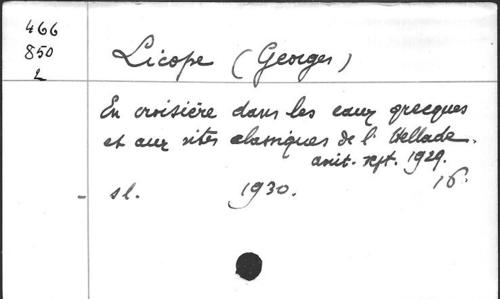 466
850
L
Licope (Georges)
En croisière dans les eaux grecques
et aux sites classiques de l'Hellade.
août-sept. 1929.
16.
- sl. 1930.